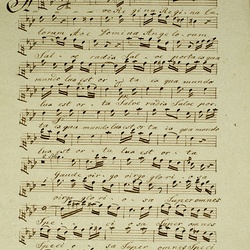 ve Regina Regina coe
lorum Ave Domina Angelorum
Sal - - ve radix salve porta ex qua
mundo lux est or - - ta ex qua mundo
lux est orta Salve radix Salve por
ta ex qua mundo lux est or ta ex qua mundo
lux est or - - ta
Gaude virgo glorio - sa
virgo glorio - - sa Super omnes
Spe - - - ci - o - - sa
Speci - o - sa Super omnes Speci